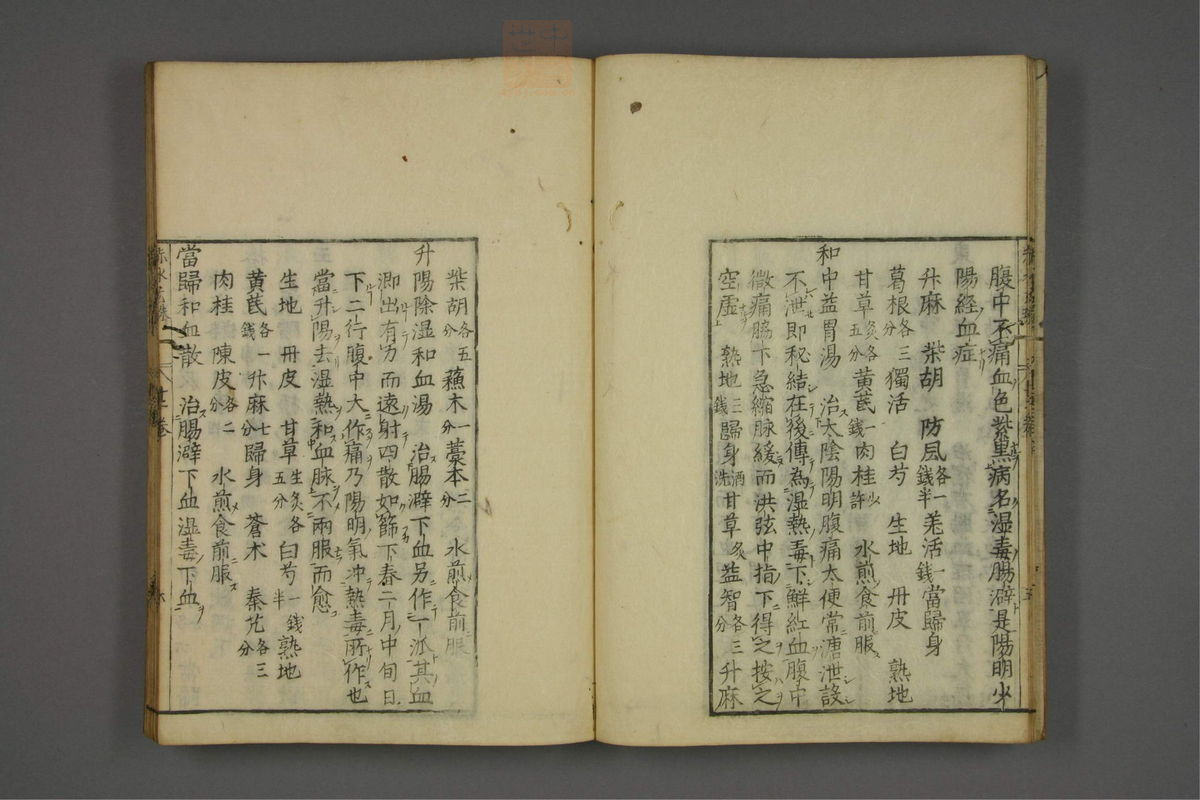 腹中不痛血色紫黒病名湿毒腸澼是陽明少
陽経血症
升麻 柴胡 防風各一錢半羗活一錢當歸身
葛根各三分獨活 白芍 生地 丹皮 熟地
甘草炙各五分黄芪一錢肉桂少許 水煎食前服
和中益胃湯 治太陰陽明腹痛大便常溏泄設
不泄即秘結在後傳為湿熱毒下鮮紅血腹中
微痛脇下急縮脉緩而洪弦中指下得之按之
空虚 熟地三錢歸身酒洗甘草炙益智各三分升麻
柴胡各五分蘓木一分藁本二分 水煎食前服
升陽除湿和血湯 治腸澼下血另作一派其血
㘉出有力而遠射四散如篩下春二月中旬日
下二行腹中大作痛乃陽明氣冲熱毒所作也
當升陽去湿熱和血脉不兩服而愈
生地 丹皮 甘草生炙各五分白芍一錢半熟地
黄芪各一錢升麻七分歸身 蒼朮 秦艽各三分
肉桂 陳皮各二分 水煎食前服
當歸和血散 治腸澼下血湿毒下血